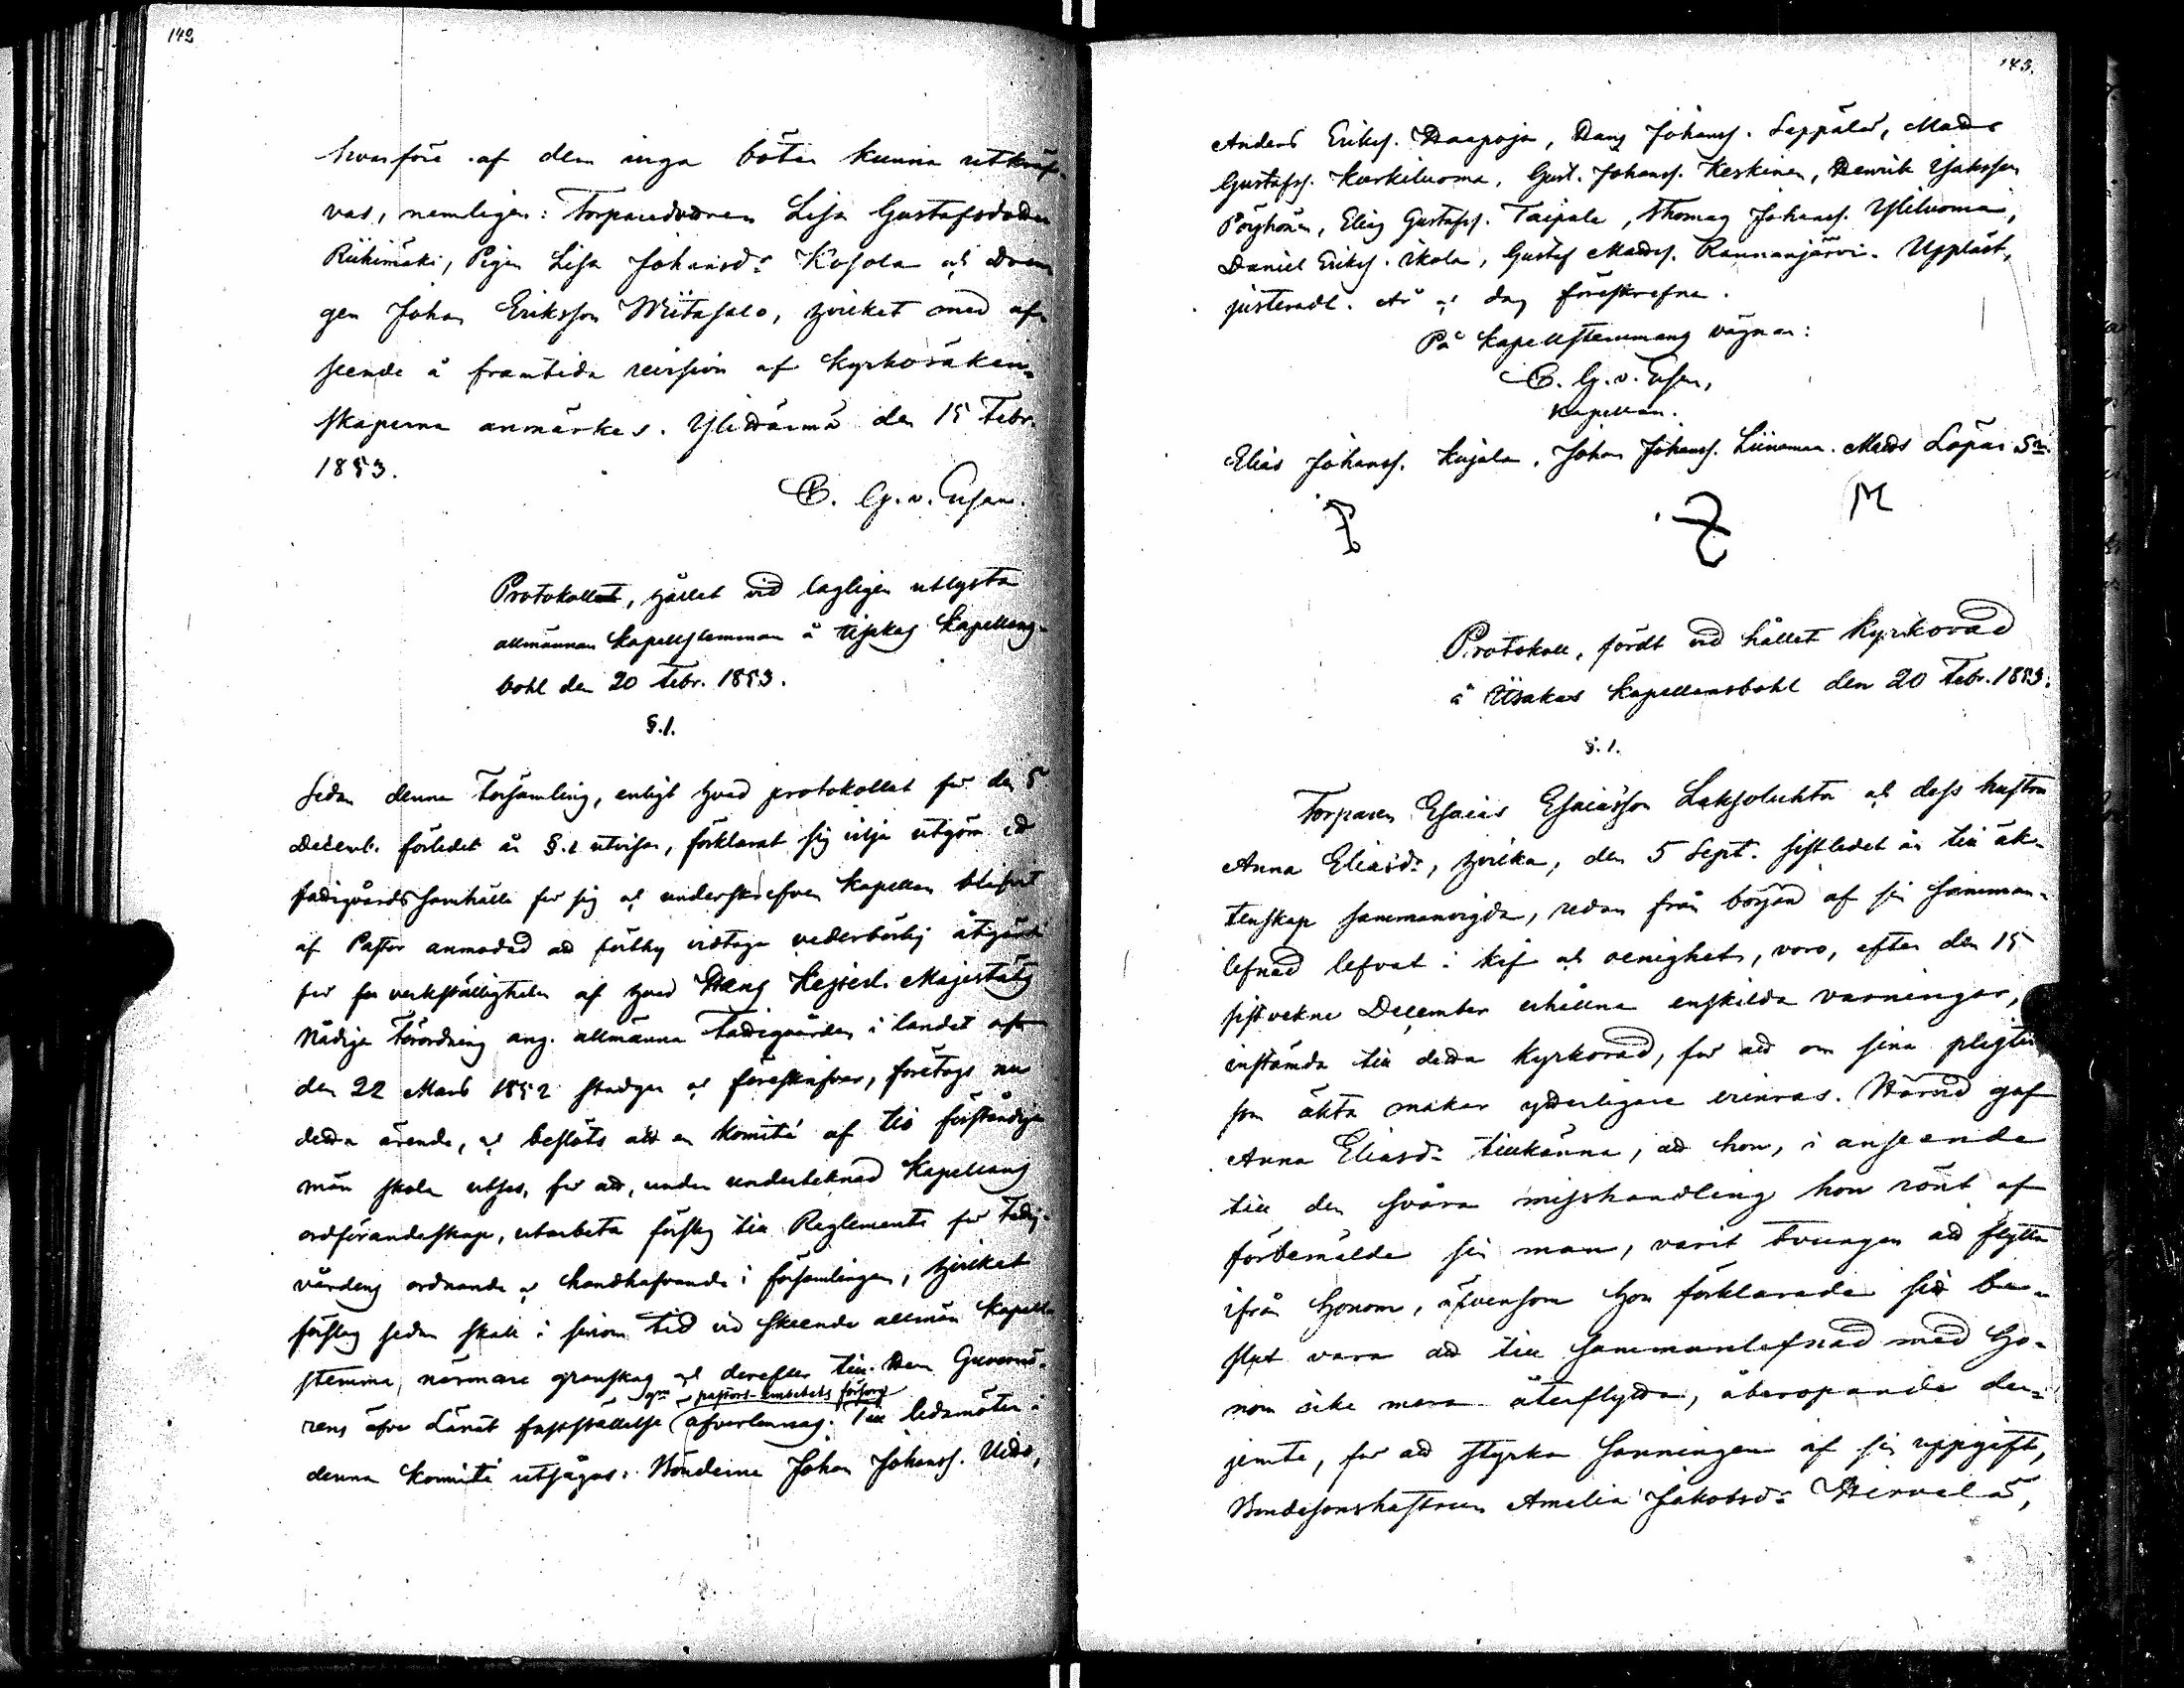 142
hvarföre af dem inga böter kunna utkräf-
vas, nemligen: Torparedottren Lisa Gustafsdotter
Riihimäki, Pigan Lisa Johansd:r Kosola och Drän-
gen Johan Eriksson Wiitasalo, hvilket med af-
seende å framtida revision af Kyrkoräken-
skaperna anmärkes. Ylihärmä den 15 Febr.
1853.
C. G. v. Essen.
Protokollet, hållet vid lagligen utlysta
allmänna Kapellstemman å Kapellans-
bohl den 20 Febr. 1853.
§.1.
Sedan denna Församling, enligt hvad protokollet för den 5
Decemb. förledet år §.1 utvisar, förklarat sig vilja utgöra ett
fattigvårdssamhälle för sig och underskrefven Kapellan blifvit
af Pastor anmodad att vidtaga vederbörlig åtgärd
för verkställigheten af hvad Hans Kejserl. Majestäts
Nådiga Förordning ang. allmänna Fattigvården i landet af
den 22 Mars 1852 stadgar och föreskrifver, företogs nu
detta ärende, och beslöts att en Komité af tio förståndiga
män skola utses, för att, under undertecknad Kapellans
ordförandeskap, utarbeta förslag till Reglemente för Fattig-
vårdens ordnande och handhafvande i församlingen, hvilket
förslag sedan skall i sinom tid vid skeende allmän Kapell-
stemma, närmare granskas och derefter till Herr Guvernö-
gm pastors-embetets försorg
rens öfver Länet fastställelse öfverlemnas. Till ledamöter i
denna Komité utsågos: Bönderne Johan Johanss.
143.
Anders Erikss. Haapoja, Hans Johanss. Seppälä, Matts
Gustafss. Kurkiluoma, Gust. Johanss. Keskinen, Henrik Isaksson
Pöyhönen, Elias Gustafss. Taipale, Thomas Johanss. Yliluoma,
Daniel Erikss. Ikola, Gustaf Mattss. Rannanjärvi. Uppläst,
justeradt. År och dag föreskrefne.
På Kapellstemmans vägnar:
C. G. v. Essen,
Kapellan.
Elias Johanss. Kujala. Johan Johanss. Liinamaa. Matts Löpar
M
Protokoll, fördt vid hållet Kyrkoråd
å Kapellansbohl den 20 Febr. 1853.
§.1.
Torparen Esaias Esaiasson Laksoluhta och dess hustru
Anna Eliasd:r, hvilka, den 5 Sept. sistledet år till äk-
tenskap sammanvigda, redan från början af sin samman-
lefnad lefvat i kif och oenighet, voro, efter den 15
sistvekne December erhållna enskilda varningar,
instämda till detta Kyrkoråd, för att om sina pligter
som äkta makar ytterligare erinras. Härvid gaf
Anna Eliasd:r tillkänna, att hon, i anseende
till den svåra misshandling hon rönt af
förbemälde sin man, varit tvungen att flytta
ifrån honom, äfvensom hon förklarade sitt be-
slut vara att till sammanlefnad med ho-
nom icke mera återflytta, åberopande der-
jemte, för att styrka sanningen af sin uppgift,
Bondesonshustrun Amelia Jakobsd:r Hirvelä,